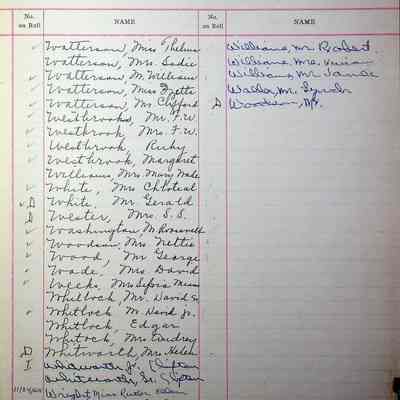 No. on Roll NAME No. on Roll NAME
Watterson, Miss Thelma
Watterson, Mrs. Sadie
Watterson, Mr. William
Watterson, Miss Izette
Watterson, Mr. Clifford
Westbrooks, Mr. F. W.
Westbrook, Mrs. F. W.
Westbrook, Ruby
Westbrook, Margaret
Williams, Mrs. Mary Wade
White, Mrs Chloteal
D White, Mr. Gerald
D Wester, Mrs. S. S.
Washington, Mr Roosevelt
Woodson, Mrs. Nettie
Wood, Mr George
Wade, Mrs David
Weeks, Mrs
Whitlock, Mr. David Sr.
Whitlock Mr David Jr.
Whitlock, Edgar
Whitock, Mrs Audrey
D Whitworth, Mrs. Helen
I Whitworth, Jr. Clifton
Whitworth, Sr. Clifton
Wright Miss
Williams, Mr. Robert
Williams, Mrs. Vivian
Williams, Mr. James
Waller, Mr.
D Woodson,